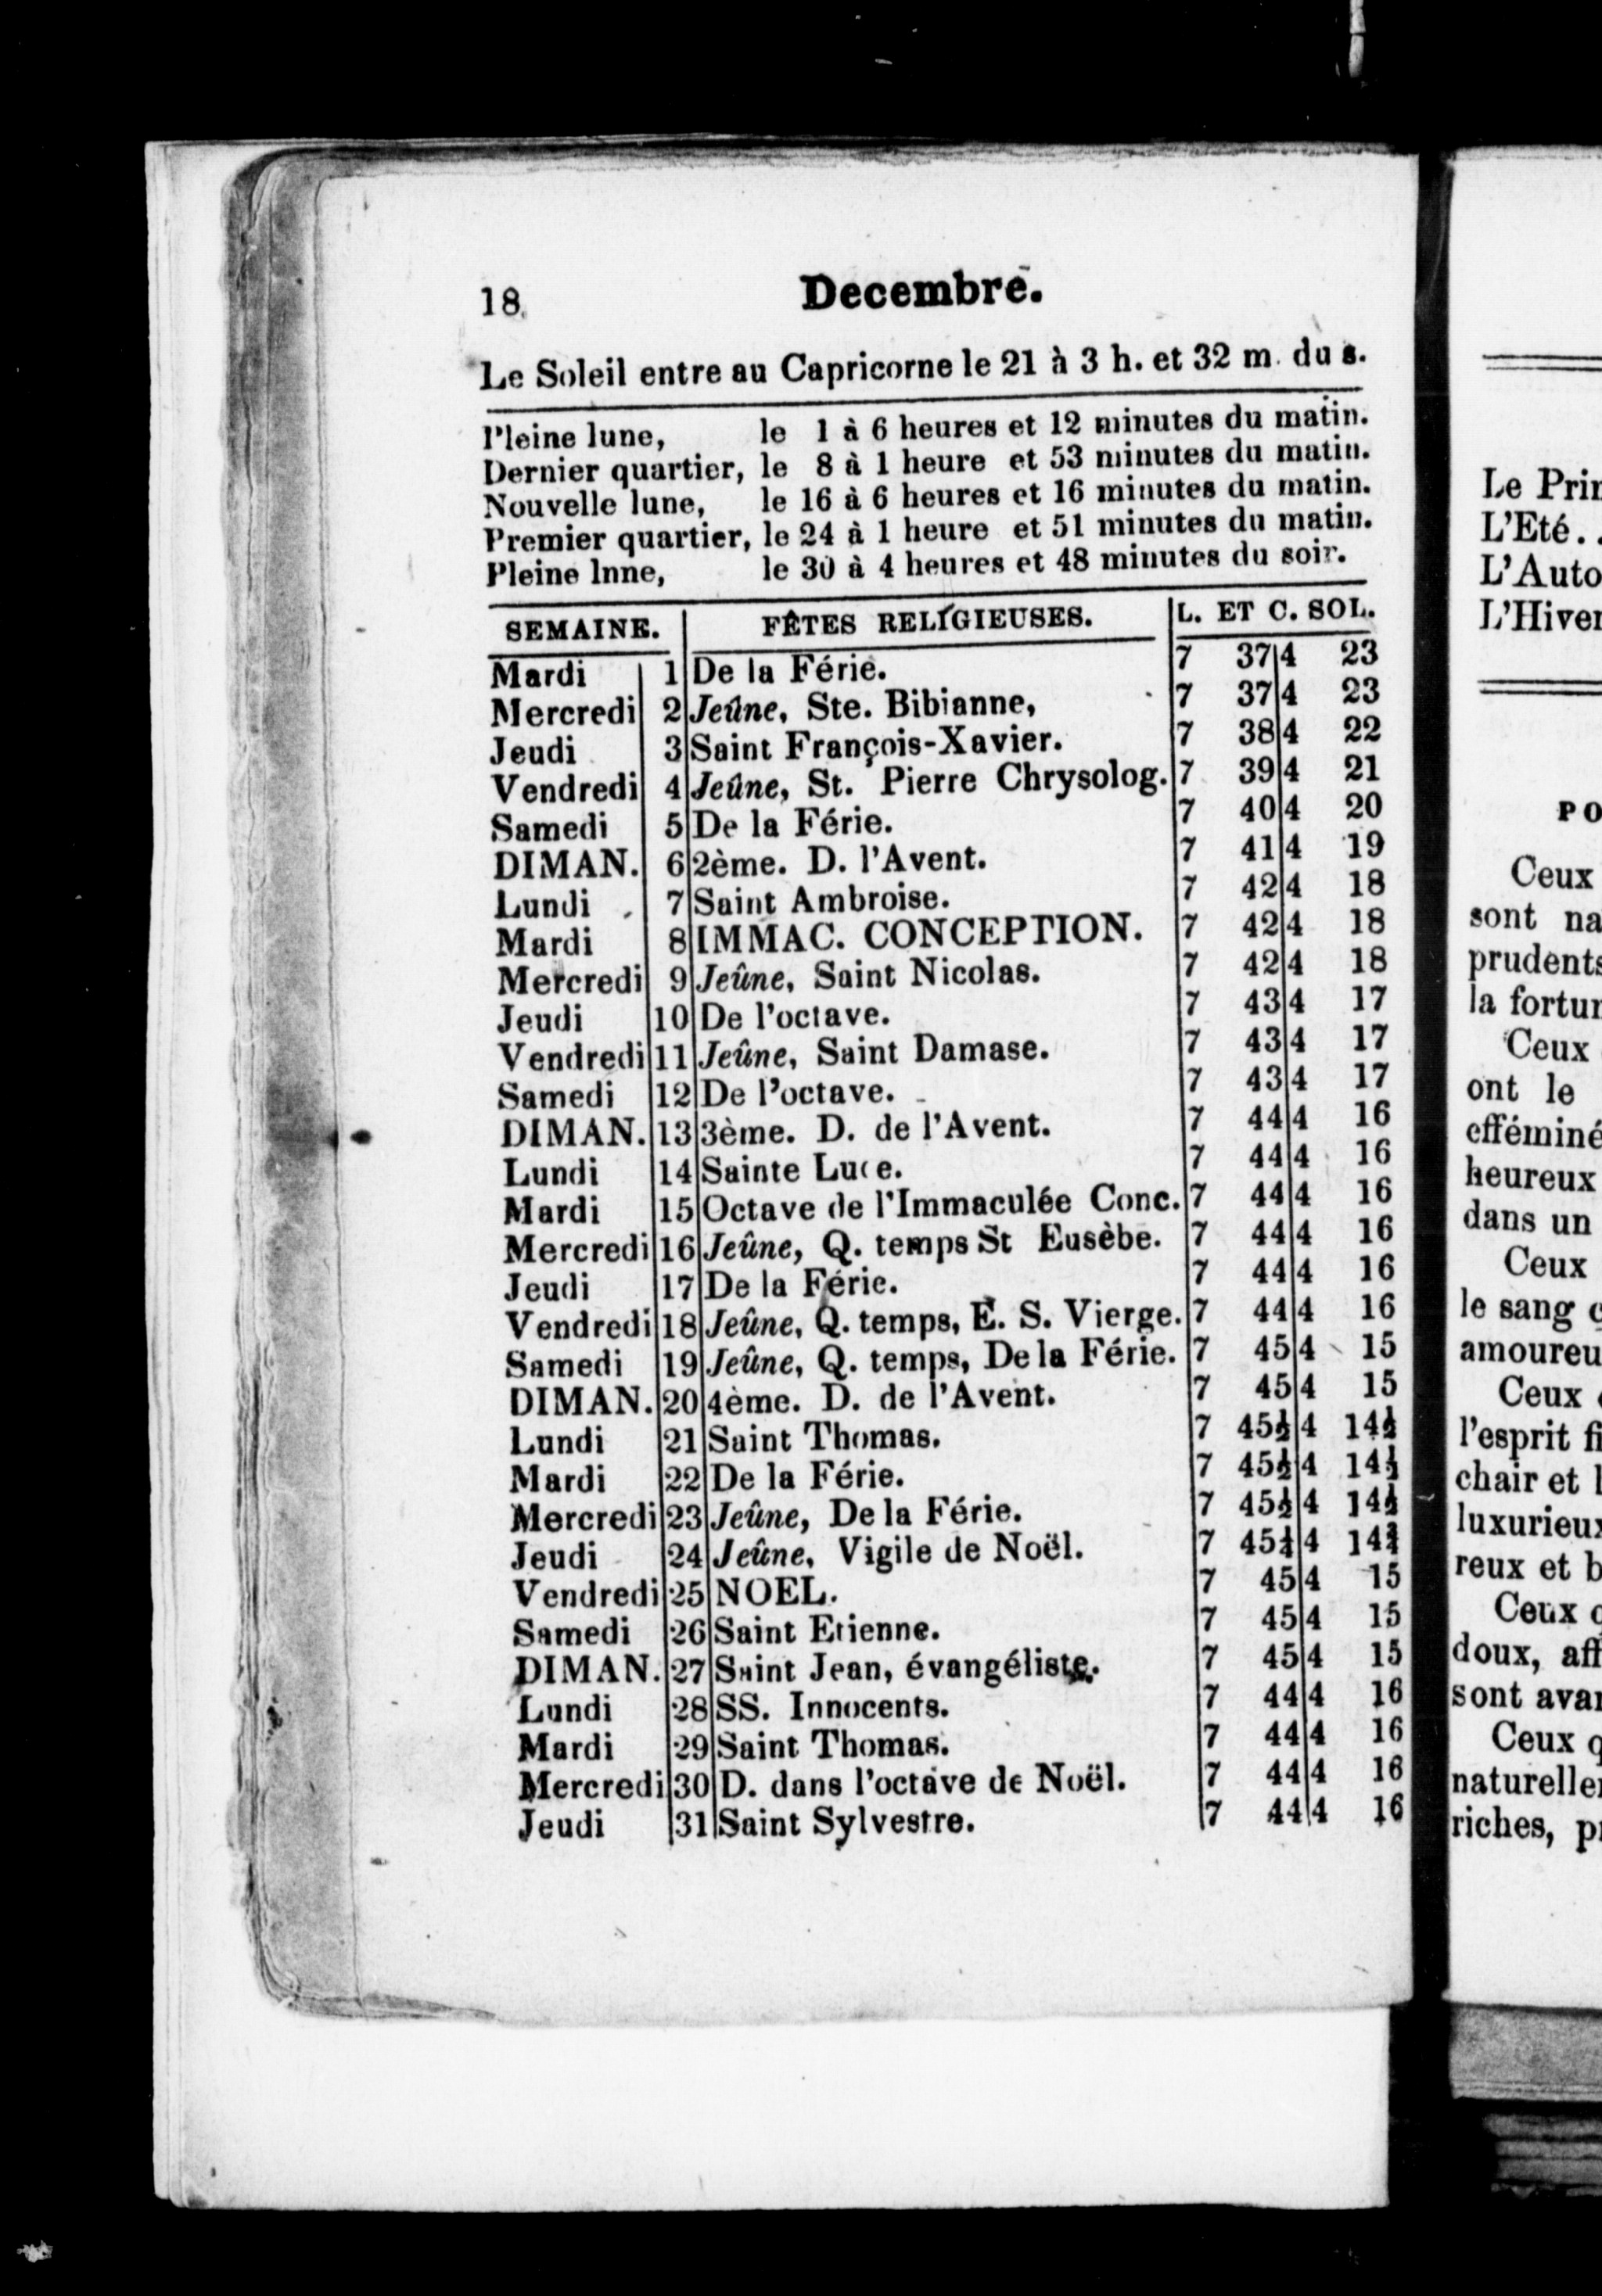 18 Decembre.
Le Soleil entre au Capricorne le 21 à 3 h. et 32 m. du s.
Pleine lune, le 1 à 6 heures et 12 minutes du matin.
Dernier quartier, le 8 à 1 heure et 53 minutes du matin.
Nouvelle lune, le 16 à 6 heures et 16 minutes du matin.
Premier quartier, le 24 à 1 heure et 51 minutes du matin.
Pleine lnne, le 30 à 4 heures et 48 minutes du soir.
SEMAINE. FÊTES RELIGIEUSES. L. ET C. SOL.
Mardi 1 De la Férie. 7 37 4 23
Mercredi 2 Jeûne, Ste. Bibianne, 7 37 4 23
Jeudi 3 Saint François-Xavier. 7 38 4 22
Vendredi 4 Jeûne, St. Pierre Chrysolog. 7 39 4 21
Samedi 5 De la Férie. 7 40 4 20
DIMAN. 6 2ème. D. l'Avent. 7 41 4 19
Lundi 7 Saint Ambroise. 7 42 4 18
Mardi 8 IMMAC. CONCEPTION. 7 42 4 18
Mercredi 9 Jeûne, Saint Nicolas. 7 42 4 18
Jeudi 10 De l'octave. 7 43 4 17
Vendredi 11 Jeûne, Saint Damase. 7 43 4 17
Samedi 12 De l'octave. 7 43 4 17
DIMAN. 13 3ème. D. de l'Avent. 7 44 4 16
Lundi 14 Sainte Luce. 7 44 4 16
Mardi 15 Octave de l'Immaculée Conc. 7 44 4 16
Mercredi 16 Jeûne, Q. temps St Eusèbe. 7 44 4 16
Jeudi 17 De la Férie. 7 44 4 16
Vendredi 18 Jeûne, Q. temps, E. S. Vierge. 7 44 4 16
Samedi 19 Jeûne, Q. temps, De la Férie. 7 45 4 15
DIMAN. 20 4ème. D. de l'Avent. 7 45 4 15
Lundi 21 Saint Thomas. 7 45½ 4 14½
Mardi 22 De la Férie. 7 45½ 4 14½
Mercredi 23 Jeûne, De la Férie. 7 45½ 4 14½
Jeudi 24 Jeûne, Vigile de Noël. 7 45¼ 4 14¾
Vendredi 25 NOEL. 7 45 4 15
Samedi 26 Saint Etienne. 7 45 4 15
DIMAN. 27 Saint Jean, évangéliste. 7 45 4 15
Lundi 28 SS. Innocents. 7 44 4 16
Mardi 29 Saint Thomas. 7 44 4 16
Mercredi 30 D. dans l'octave de Noël. 7 44 4 16
Jeudi 31 Saint Sylvestre. 7 44 4 16
Le Prin
L'Eté..
L'Auto
L'Hiver
PO
Ceux
sont na
prudents
la fortun
Ceux
ont le
efféminé
heureux
dans un
Ceux
le sang
amoureu
Ceux
l'esprit fi
chair et l
luxurieux
reux et b
Ceux q
doux, aff
sont avan
Ceux q
naturelle
riches, pr